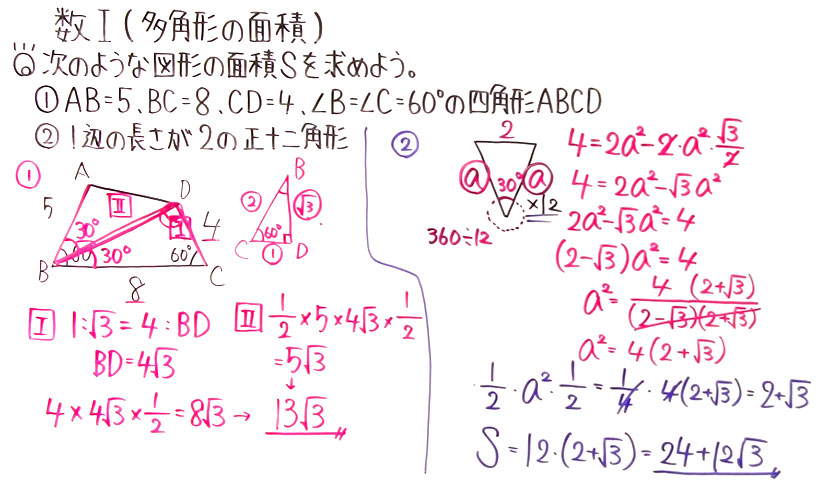 数I(多角形の面積)
次のような図形の面積Sを求めよう。
①AB=5、BC=8、CD=4、∠B=∠C=60°の四角形ABCD
②1辺の長さが2の正十二角形
①
A
D
5
II
30°
I
4
60
30°
60°
B
8
C
B
②
√3
60°
C
①
D
I 1:√3=4:BD
BD=4√3
4×4√3×1/2=8√3→13√3
II 1/2×5×4√3×1/2
=5√3
↓
②
2
a
30°
a
×12
360÷12
4=2a²-2・a²・√3/2
4=2a²-√3a²
2a²-√3a²=4
(2-√3)a²=4
a²=4(2+√3)/(2-√3)(2+√3)
a²=4(2+√3)
1/2・a²・1/2=1/4・4(2+√3)=2+√3
S=12・(2+√3)=24+12√3